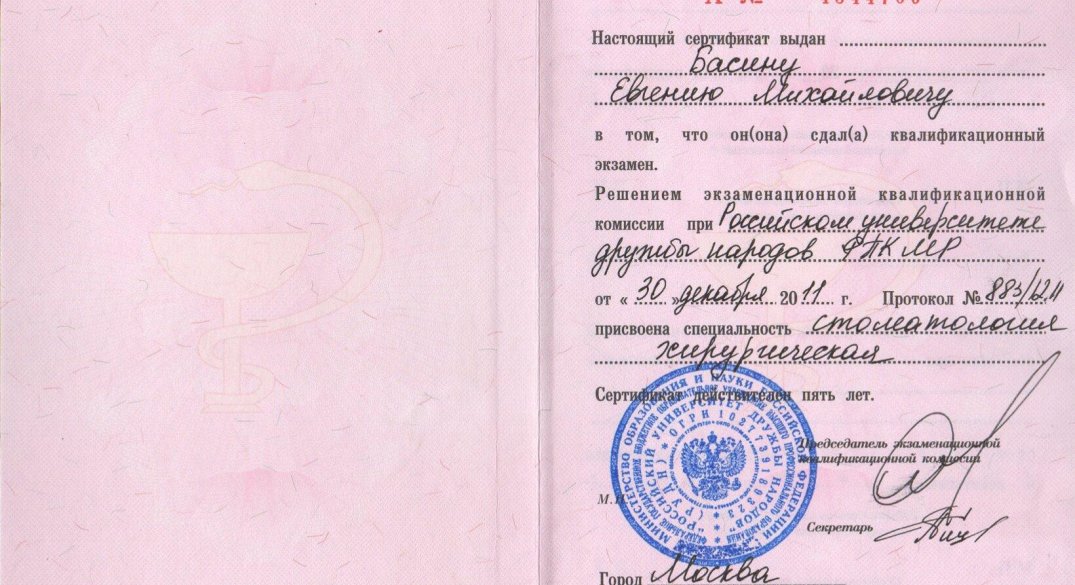 Настоящий сертификат выдан
Басину
Евгению Михайловичу
в том, что он(она) сдал(а) квалификационный
экзамен.
Решением экзаменационной квалификационной
комиссии при Российском университете
дружбы народов ФПК МР
от « 30 » декабря 2011 г. Протокол №
присвоена специальность стоматология
хирургическая
Сертификат действителен пять лет.
МИНИСТЕРСТВО ОБРАЗОВАНИЯ И НАУКИ РОССИЙСКОЙ ФЕДЕРАЦИИ
"РОССИЙСКИЙ УНИВЕРСИТЕТ ДРУЖБЫ НАРОДОВ" (РУДН)
ОГРН 1027739189323
Председатель экзаменационной
квалификационной комиссии
М.П.
Секретарь
Город Москва